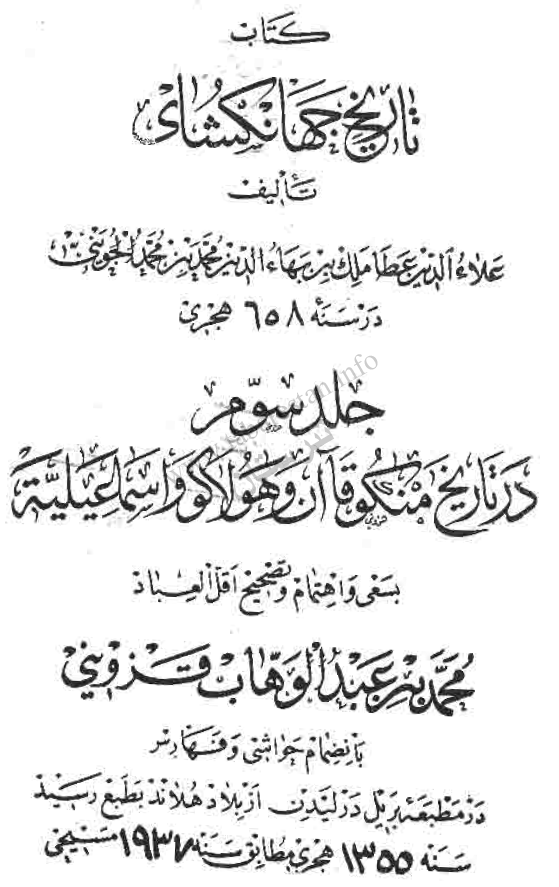 كتاب
تاريخ جهانگشاى
تأليف
علاء الدين عطا ملك بن بهاء الدين محمد بن محمد الجوينى
در سنهٔ ٦٥٨ هجرى
جلد سوّم
در تاريخ منكو قاآن و هولاكو و اسماعيليّة
بسعى و اهتمام و تصحيح اقلّ العباد
محمّد بن عبد الوهّاب قزوينى
بانضمام حواشى و فهارس
در مطبعهٔ بريل در ليدن از بلاد هلاند بطبع رسيد
سنه ١٣٥٥ هجرى مطابق سنه ١٩٣٧ مسيحى